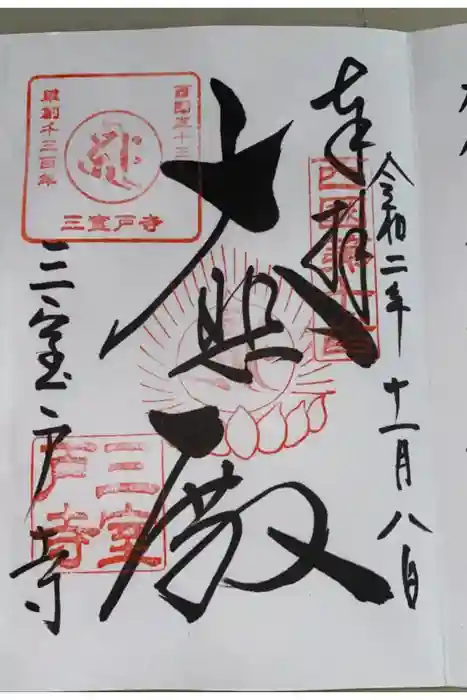 令和二年十一月八日
奉拝
西国第十番
大悲殿
西国三十三
草創千三百年
三室戸寺
三室戸寺
三室戸寺